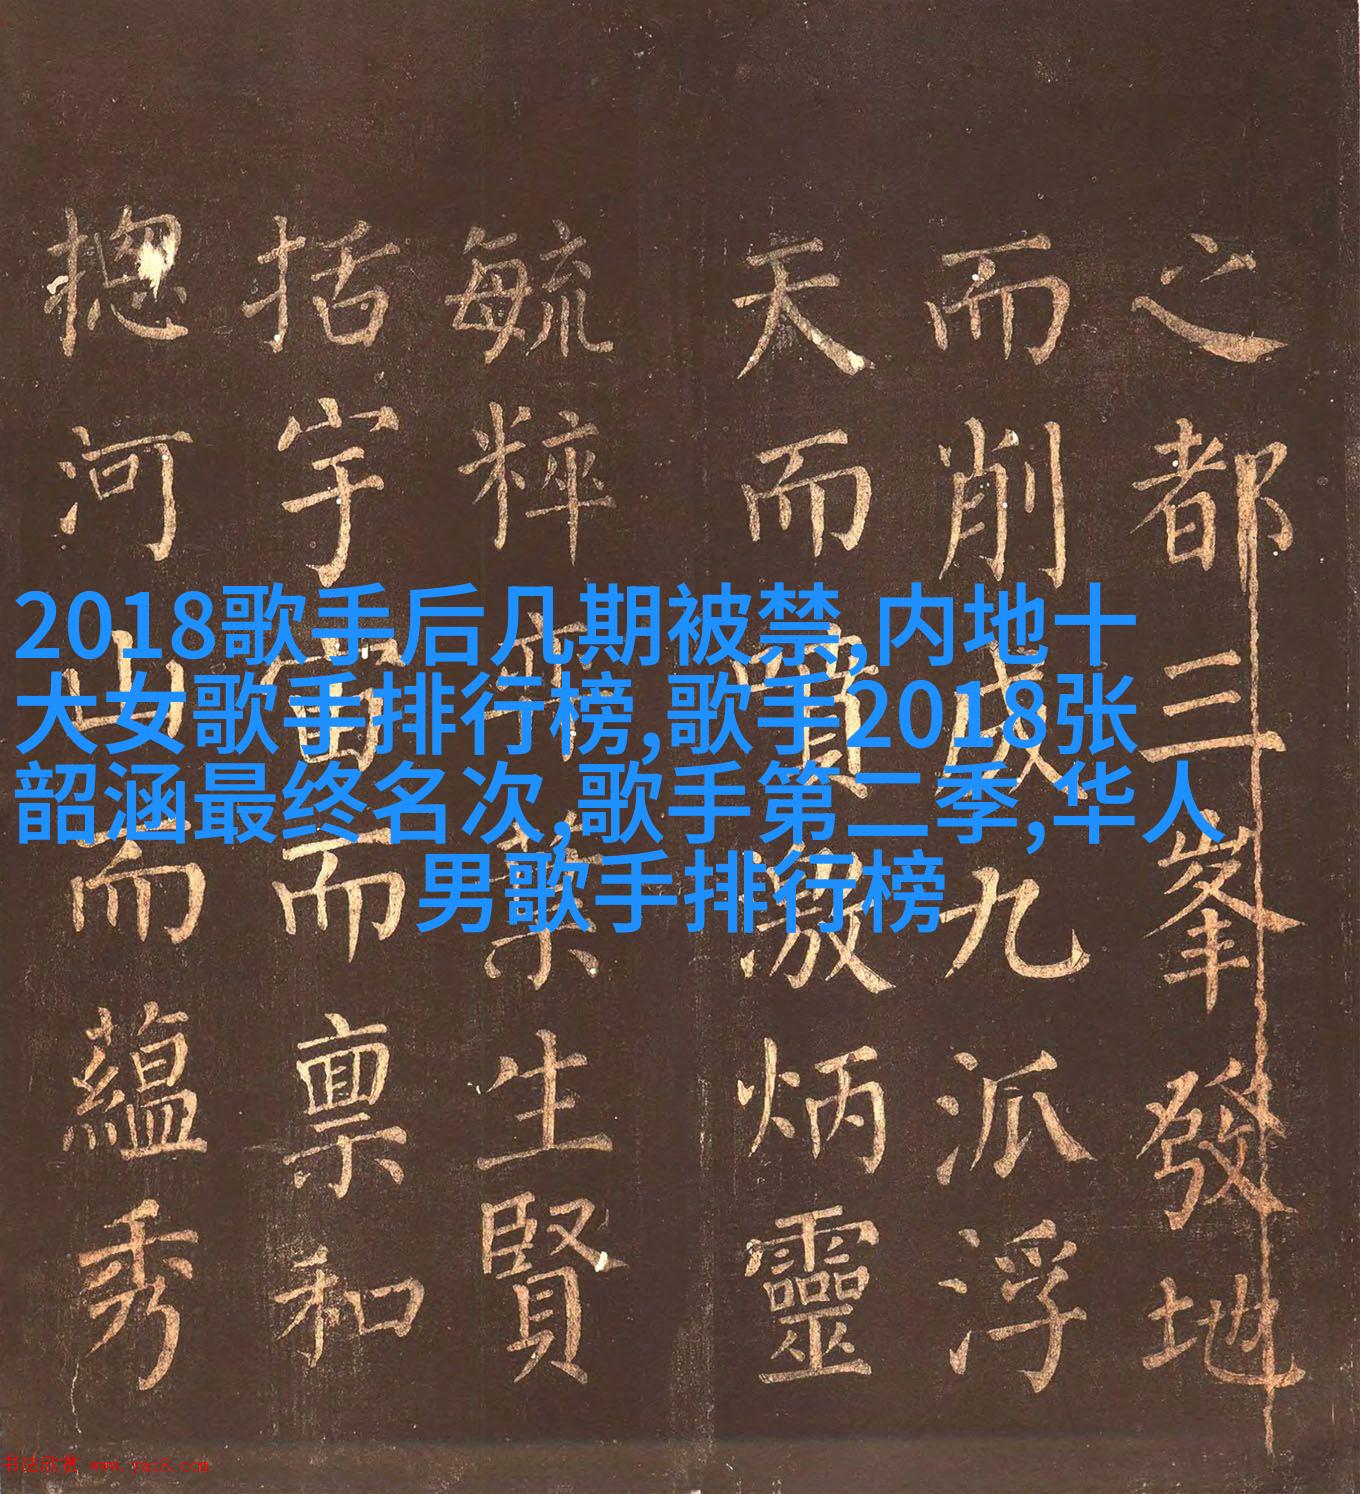 之都三峯發地
而削成九派浮
天而噴激炳靈
毓粹葉生賢
括宇宙而禀和
揔河山而蘊秀
2018歌手后几期被禁,内地十
大女歌手排行榜,歌手2018张
韶涵最终名次,歌手第二季,华人
男歌手排行榜
书法欣赏 www.yac8.com